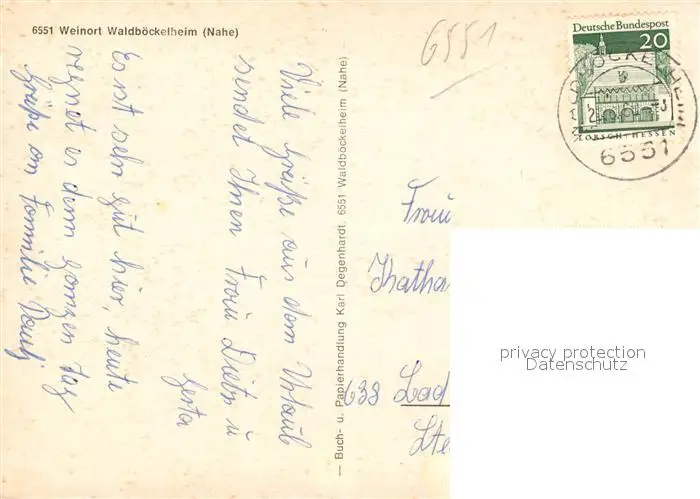 6551 Weinort Waldböckelheim (Nahe)
Viele Grüße aus dem Urlaub
sendet Ihnen Frau Dietz u
Gerta
Es ist sehr gut hier, heute
regnet es denn ganzen Tag
Grüße an Familie
— Buch- u. Papierhandlung Karl Degenhardt, 6551 Waldböckelheim (Nahe)
6551
Deutsche Bundespost
20
LORSCH/HESSEN
6551
Frau
Katha
638 Lad
privacy protection
Datenschutz